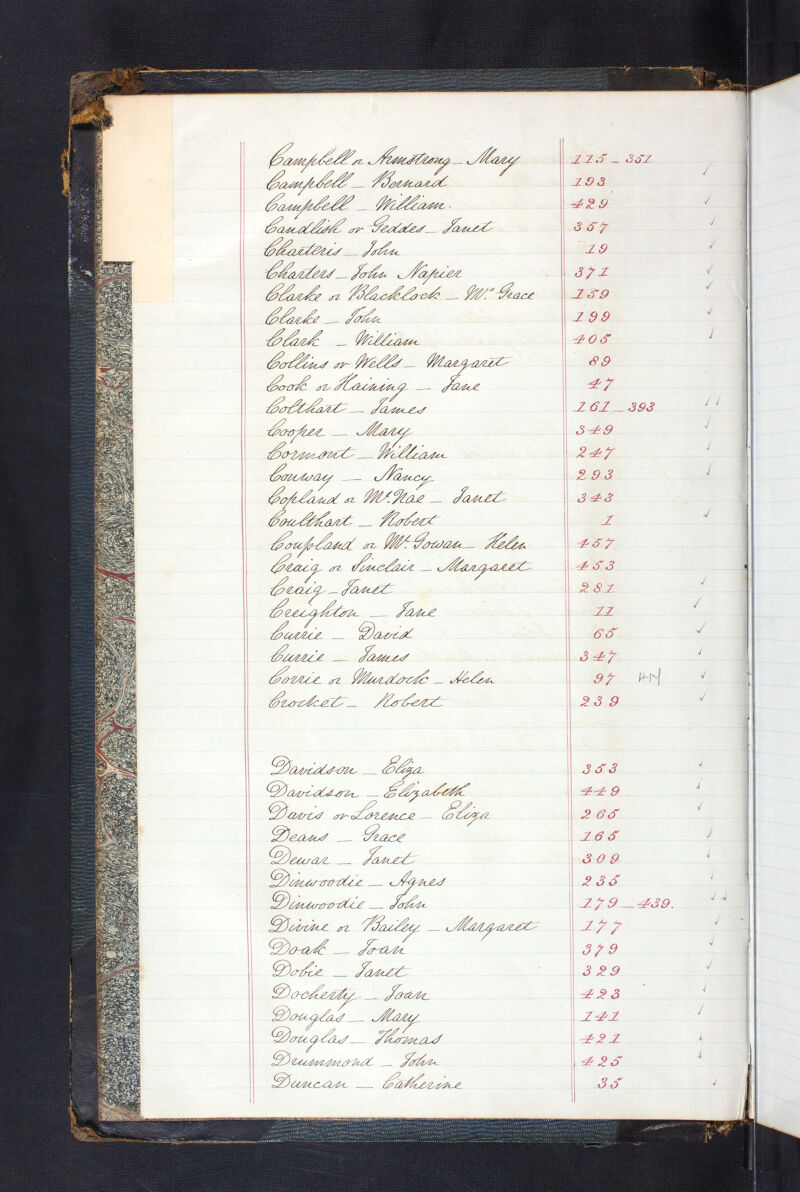 Campbell or Armstrong – Mary 115 – 351
Campbell – Bernard 193
Campbell – William. 429
Candlish or Geddes – Janet 357
Charteris – John 19
Charters – John Napier 371
Clarke or Blacklock – Mrs. Grace 159
Clarke – John 199
Clark – William 405
Collins or Wells – Margaret 89
Cook or Haining – Jane 47
Colthart – James 161 – 393
Cooper – Mary 349
Cormont – William 247
Conway – Nancy 293
Copland or Mc.Nae – Janet 343
Coulthart – Robert 1
Coupland or Mc.Gowan – Helen 457
Craig or Sinclair – Margaret 453
Craig – Janet 281
Creighton – Jane 11
Currie – David 65
Currie – James 347
Corrie or Murdock – Helen 97
Crocket – Robert 239
Davidson – Eliza 353
Davidson – Elizabeth 449
Davis or Lorence – Eliza 265
Deans – Grace 165
Dewar – Janet 309
Dinwoodie – Agnes 235
Dinwoodie – John 179 – 439.
Divine or Bailey – Margaret 177
Doak – Joan 379
Dobie – Janet 329
Docherty – Joan 423
Douglas – Mary 141
Douglas – Thomas 421
Drummond – John 425
Duncan – Catherine 35